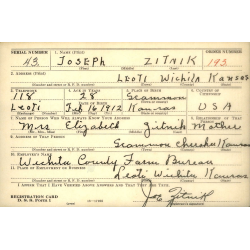 SERIAL NUMBER 1. NAME (Print) ORDER NUMBER
43 JOSEPH ZITNIK 193
2. ADDRESS (Print)
LEOTI Wichita Kansas
3. TELEPHONE 4. AGE IN YEARS 5. PLACE OF BIRTH 6. COUNTRY OF CITIZENSHIP
118 28 Scammon
DATE OF BIRTH
Leoti Feb 16 1912 Kansas USA
7. NAME OF PERSON WHO WILL ALWAYS KNOW YOUR ADDRESS 8. RELATIONSHIP OF THAT PERSON
Mrs Elizabeth Zitnik Mother
9. ADDRESS OF THAT PERSON
Scammon Cherokee Kansas
10. EMPLOYER'S NAME
Wichita County Farm Bureau
11. PLACE OF EMPLOYMENT OR BUSINESS
Leoti Wichita Kansas
I AFFIRM THAT I HAVE VERIFIED ABOVE ANSWERS AND THAT THEY ARE TRUE.
REGISTRATION CARD
D. S. S. Form 1
Joe Zitnik